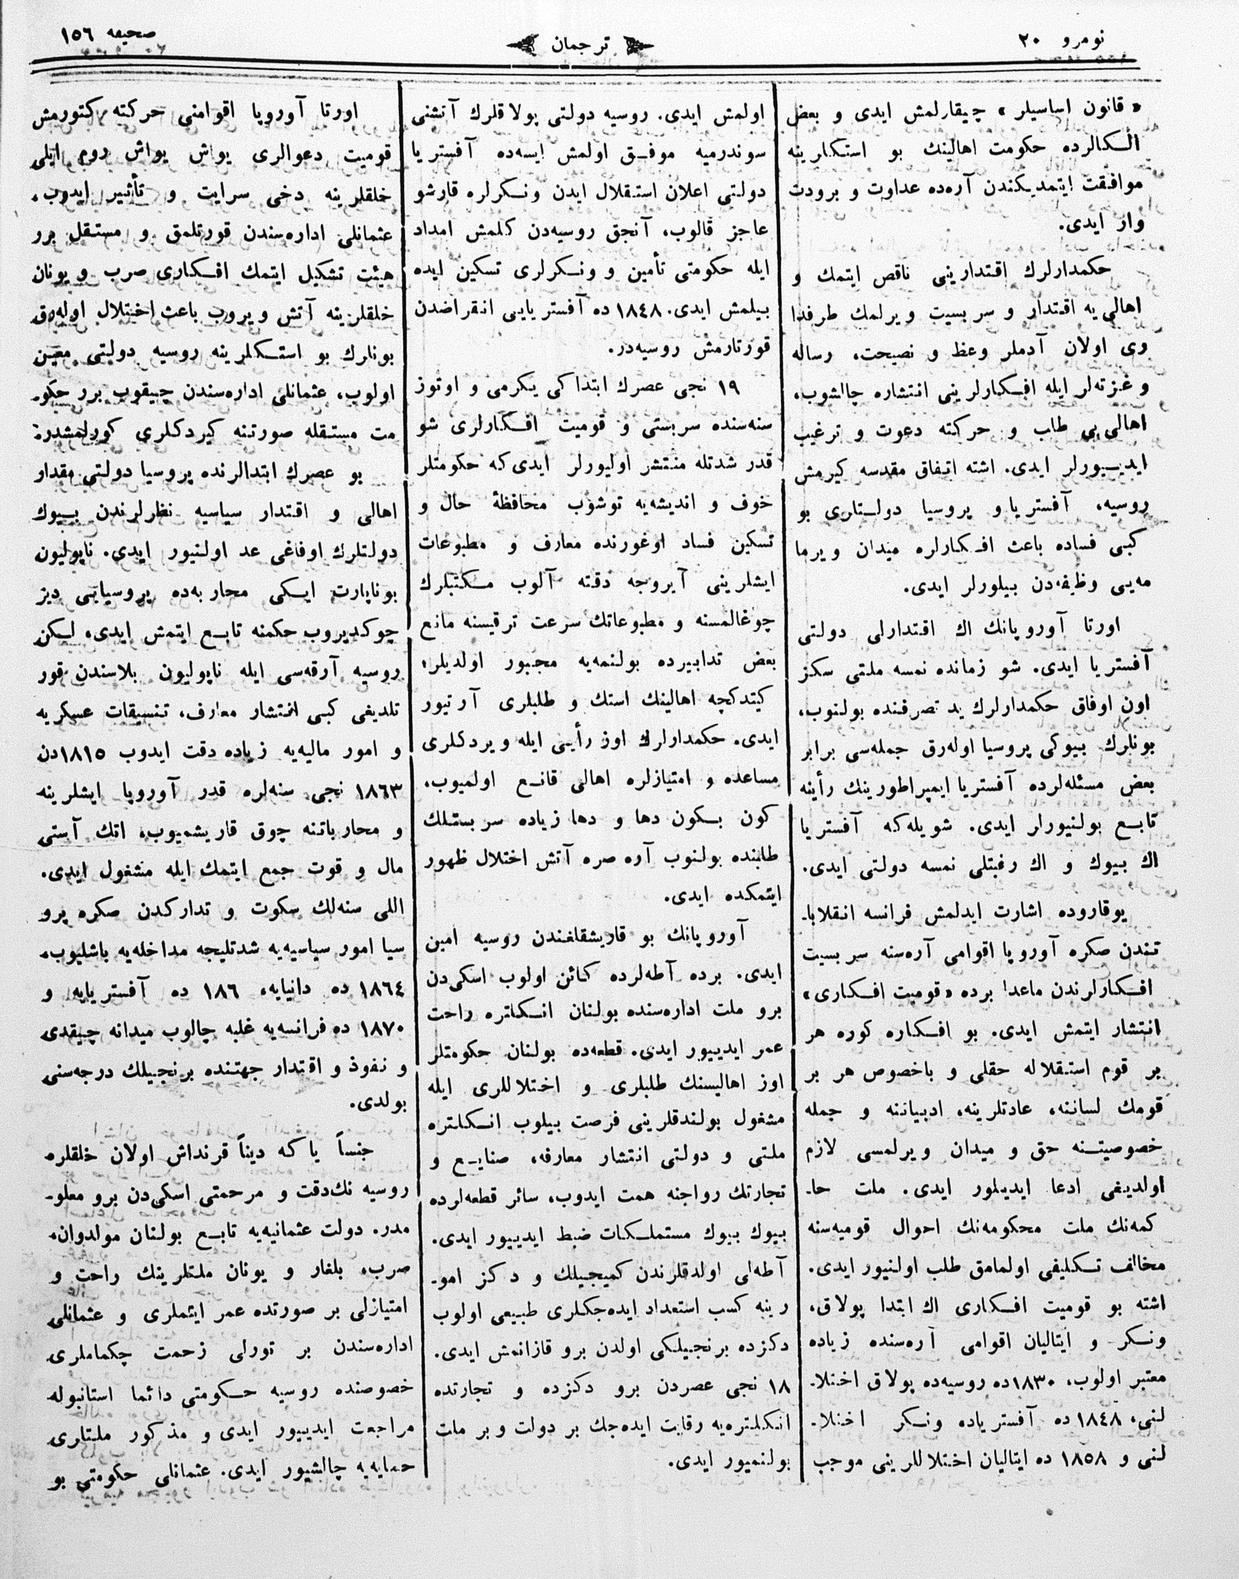 نومرو ٢٠
ترجمان
صحیفه ١٥٦
« قانون اساسیلر » چیقارلمش ایدی و بعض
الكالرده حكومت اهالینك بو استكلرینه
موافقت ایتمدیكندن آره‌ده عداوت و برودت
وار ایدی.
حكمدارلرك اقتدارینی ناقص ایتمك و
اهالی‌یه اقتدار و سربسیت ویرلمك طرفدا
وی اولان آدملر وعظ و نصیحت، رساله
و غزته‌لر ایله افكارلرینی انتشاره چالشوب،
اهالی‌یی طاب و حركته دعوت و ترغیب
ایدییورلر ایدی. اشته اتفاق مقدسه كیرمش
روسیه، آفستریا و پروسیا دولتلری بو
كبی فساده باعث افكارلره میدان ویرما
مه‌یی وظیفه‌دن بیلورلر ایدی.
اورتا آوروپانك اك اقتدارلی دولتی
آفستریا ایدی. شو زمانده نمسه ملتی سكز
اون اوفاق حكمدارلرك ید تصرفنده بولنوب،
بونلرك بیوكی پروسیا اوله‌رق جمله‌سی برابر
بعض مسئله‌لرده آفستریا ایمپراطورینك رأینه
تابع بولنیورلر ایدی. شویله‌كه آفستریا
اك بیوك و اك رغبتلی نمسه دولتی ایدی.
یوقاروده اشارت ایدلمش فرانسه انقلابا-
تندن صكره آوروپا اقوامی آره‌سنه سربسیت
افكارلرندن ماعدا برده «قومیت افكاری»
انتشار ایتمش ایدی. بو افكاره كوره هر
بر قوم استقلاله حقلی و باخصوص هر بر
قومك لساننه، عادتلرینه، ادبیاتنه و جمله
خصوصیتنه حق و میدان ویرلمسی لازم
اولدیغی ادعا ایدیلور ایدی. ملت حا-
كمه‌نك ملت محكومه‌نك احوال قومیه‌سنه
مخالف تكلیفی اولمامق طلب اولنیور ایدی.
اشته بو قومیت افكاری اك ابتدا پولاق،
ونكر و ایتالیان اقوامی آره‌سنده زیاده
معتبر اولوب، ١٨٣٠ده روسیه‌ده پولاق اختلا-
لنی، ١٨٤٨ ده آفستریاده ونكر اختلا-
لنی و ١٨٥٨ ده ایتالیان اختلاللرینی موجب
اولمش ایدی. روسیه دولتی پولاقلرك آتشنی
سوندرمیه موفق اولمش ایسه‌ده آفستریا
دولتی اعلان استقلال ایدن ونكرلره قارشو
عاجز قالوب، آنجق روسیه‌دن كلمش امداد
ایله حكومتی تأمین و ونكرلری تسكین ایده
بیلمش ایدی. ١٨٤٨ ده آفستریایی انقراضدن
قورتارمش روسیه‌در.
١٩ نجی عصرك ابتداكی یكرمی و اوتوز
سنه‌سنده سربستی و قومیت افكارلری شو
قدر شدتله منتشر اولیورلر ایدی‌كه حكومتلر
خوف و اندیشه‌یه توشوب محافظهٔ حال و
تسكین فساد اوغورنده معارف و مطبوعات
ایشلرینی آیروجه دقته آلوب مكتبلرك
چوغالمسنه و مطبوعاتك سرعت ترقیسنه مانع
بعض تدابیرده بولنمه‌یه مجبور اولدیلر؛
كیتدكچه اهالینك استك و طلبلری آرتیور
ایدی. حكمدارلرك اوز رأیی ایله ویردكلری
مساعده و امتیازلره اهالی قانع اولمیوب،
كون بكون دها و دها زیاده سربستلك
طلبنده بولنوب آره صره آتش اختلال ظهور
ایتمكده ایدی.
آوروپانك بو قاریشقلغندن روسیه امین
ایدی. برده آطه‌لرده كائن اولوب اسكی‌دن
برو ملت اداره‌سنده بولنان انكلتره راحت
عمر ایدییور ایدی. قطعه‌ده بولنان حكومتلر
اوز اهالیسنك طلبلری و اختلاللری ایله
مشغول بولندقلرینی فرصت بیلوب انكلتره
ملتی و دولتی انتشار معارفه، صنایع و
تجارتك رواجنه همت ایدوب، سائر قطعه‌لرده
بیوك بیوك مستملكات ضبط ایدییور ایدی.
آطه‌لی اولدقلرندن كمیجیلك و دكز امو-
رینه كسب استعداد ایده‌جكلری طبیعی اولوب
دكزده برنجیلكی اولدن برو قازانمش ایدی.
١٨ نجی عصردن برو دكزده و تجارتده
انكلتره‌یه رقابت ایده‌جك بر دولت و بر ملت
بولنمیور ایدی.
اورتا آوروپا اقوامنی حركته كتورمش
قومیت دعوالری یواش یواش روم ایلی
خلقلرینه دخی سرایت و تأثیر ایدوب،
عثمانلی اداره‌سندن قورتلمق و مستقل برر
هیئت تشكیل ایتمك افكاری صرب و یونان
خلقلرینه آتش ویروب باعث اختلال اوله‌رق
بونلرك بو استكلرینه روسیه دولتی معین
اولوب، عثمانلی اداره‌سندن چیقوب برر حكو-
مت مستقله صورتنه كیردكلری كورلمشدر.
بو عصرك ابتدالرنده پروسیا دولتی مقدار
اهالی و اقتدار سیاسیه نظرلرندن بیوك
دولتلرك اوفاغی عد اولنیور ایدی. ناپولیون
بوناپارت ایكی محاربه‌ده پروسیایی دیز
چوكدیروب حكمنه تابع ایتمش ایدی، لیكن
روسیه آرقه‌سی ایله ناپولیون بلاسندن قور
تلدیغی كبی انتشار معارف، تنسیقات عسكریه
و امور مالیه‌یه زیاده دقت ایدوب ١٨١٥دن
١٨٦٣ نجی سنه‌لره قدر آوروپا ایشلرینه
و محارباتنه چوق قاریشمیوب، اتك آستی
مال و قوت جمع ایتمك ایله مشغول ایدی.
اللی سنه‌لك سكوت و تداركدن صكره پرو
سیا امور سیاسیه‌یه شدتلیجه مداخله‌یه باشلیوب،
١٨٦٤ ده دانیایه، ١٨٦ ده آفستریایه و
١٨٧٠ ده فرانسه‌یه غلبه چالوب میدانه چیقدی
و نفوذ و اقتدار جهتنده برنجیلك درجه‌سنی
بولدی.
جنساً یاكه دیناً قرنداش اولان خلقلره
روسیه نك‌دقت و مرحمتی اسكی‌دن برو معلو-
مدر. دولت عثمانیه‌یه تابع بولنان مولدوان،
صرب، بلغار و یونان ملتلرینك راحت و
امتیازلی بر صورتده عمر ایتملری و عثمانلی
اداره‌سندن بر تورلی زحمت چكماملری
خصوصنده روسیه حكومتی دائما استانبوله
مراجعت ایدییور ایدی و مذكور ملتلری
حمایه‌یه چالشیور ایدی. عثمانلی حكومتی بو